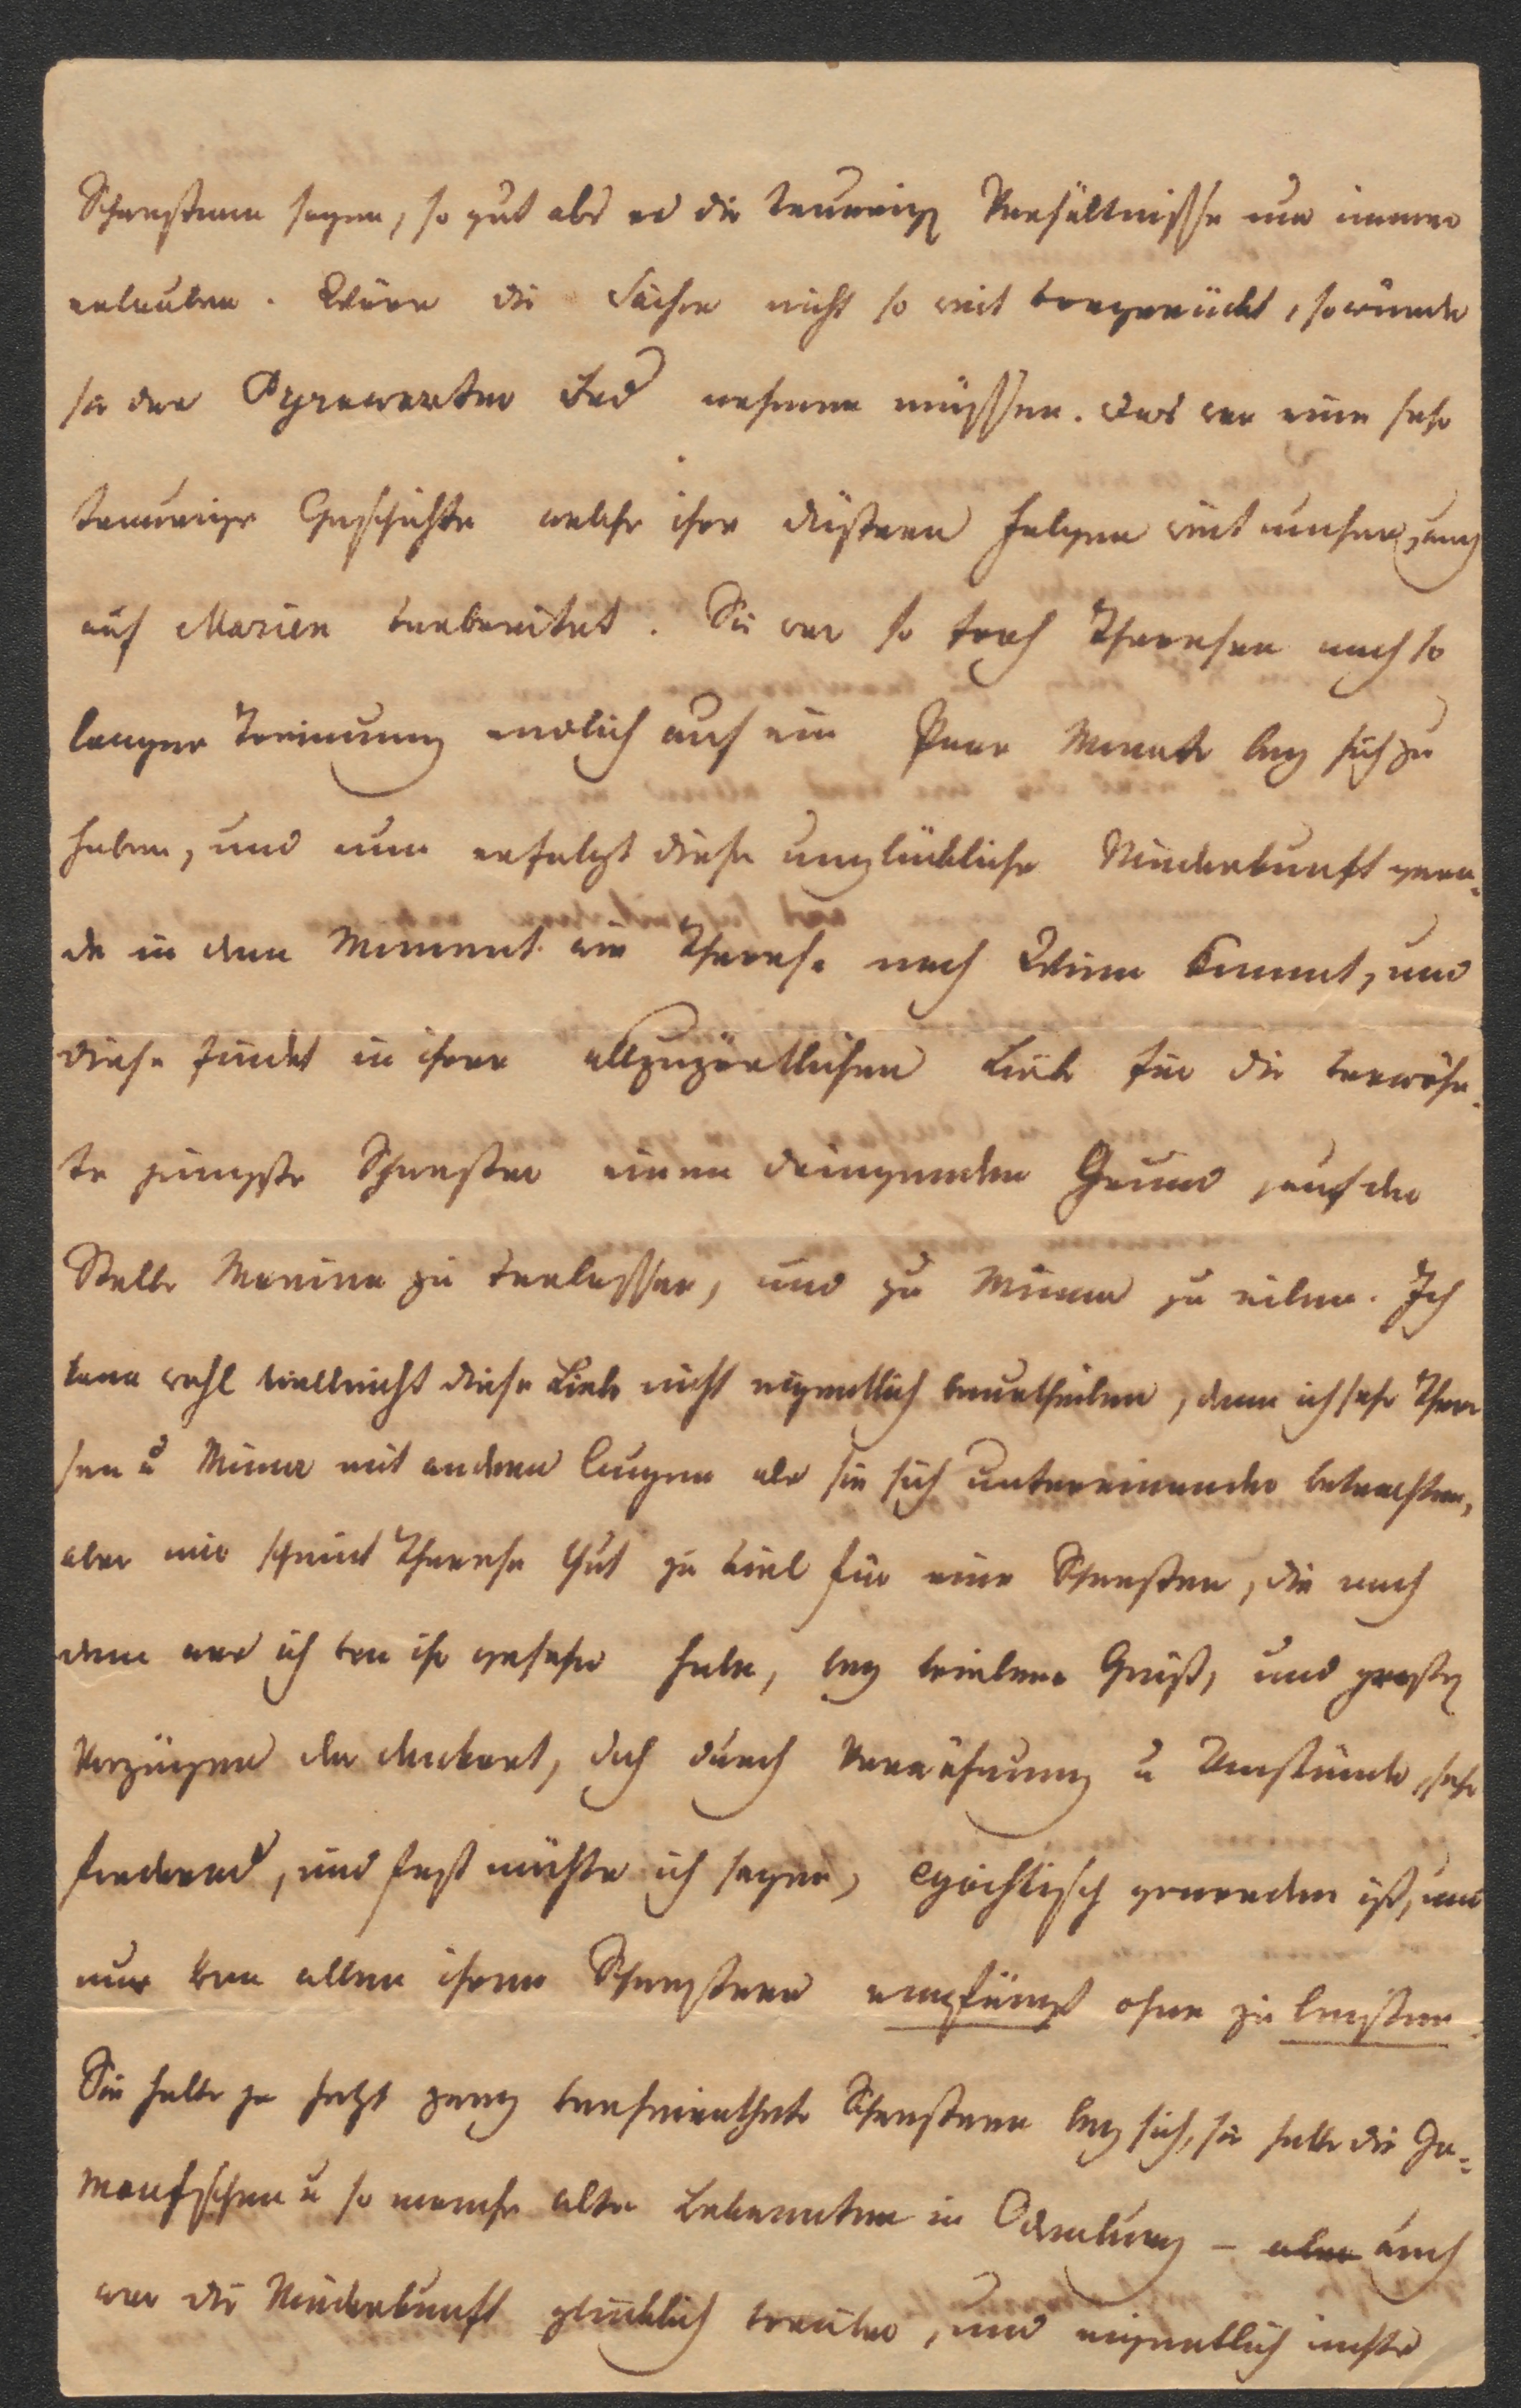 Schwestern sagen, so gut als es die traurigen Verhältnisse nur immer
erlauben. Wäre die Sache nicht so weit vorgerückt, so würde
sie der Pyrawarter Bad nehmen müssen. Das war eine sehr
traurige Geschichte welche ihre düstern Folgen weit umher, auch
auf Marien verbreitet. Sie war so froh Theresen nach so
langer Trennung endlich auf ein Paar Monate bey sich zu
haben, und nun erfolgt diese unglückliche Niederkunft gera-
de in dem Moment wie Therese nach Wien kommt, und
diese findet in ihrer allzuzärtlichen Liebe für die verwöhn-
te jüngste Schwester einen dringenden Grund, auf der
Stelle Marien zu verlassen, und zu Minna zu eilen. Ich
kann wohl vielleicht diese Liebe nicht eigentlich beurtheilen, denn ich sehe There
sen u Minna mit andern Augen als sie sich untereinander betrachten,
aber mir scheint Therese thut zu viel für eine Schwester, die nach
dem was ich von ihr gesehen habe, bey vielem Geist, und großen
Vorzügen der Denkart, doch durch Verwöhnung u Umstände, sehr
fordernd, und fast möchte ich sagen, egoistisch geworden ist, und
nur von allen ihren Schwestern empfängt ohne zu leisten.
Sie hatte ja jetzt ganz verheirathete Schwestern bey sich, sie hatte die Ja-
manschen u so manche alte Bekannten in Ödenburg – aber auch
war die Niederkunft glücklich vorüber, und eigentlich nichts